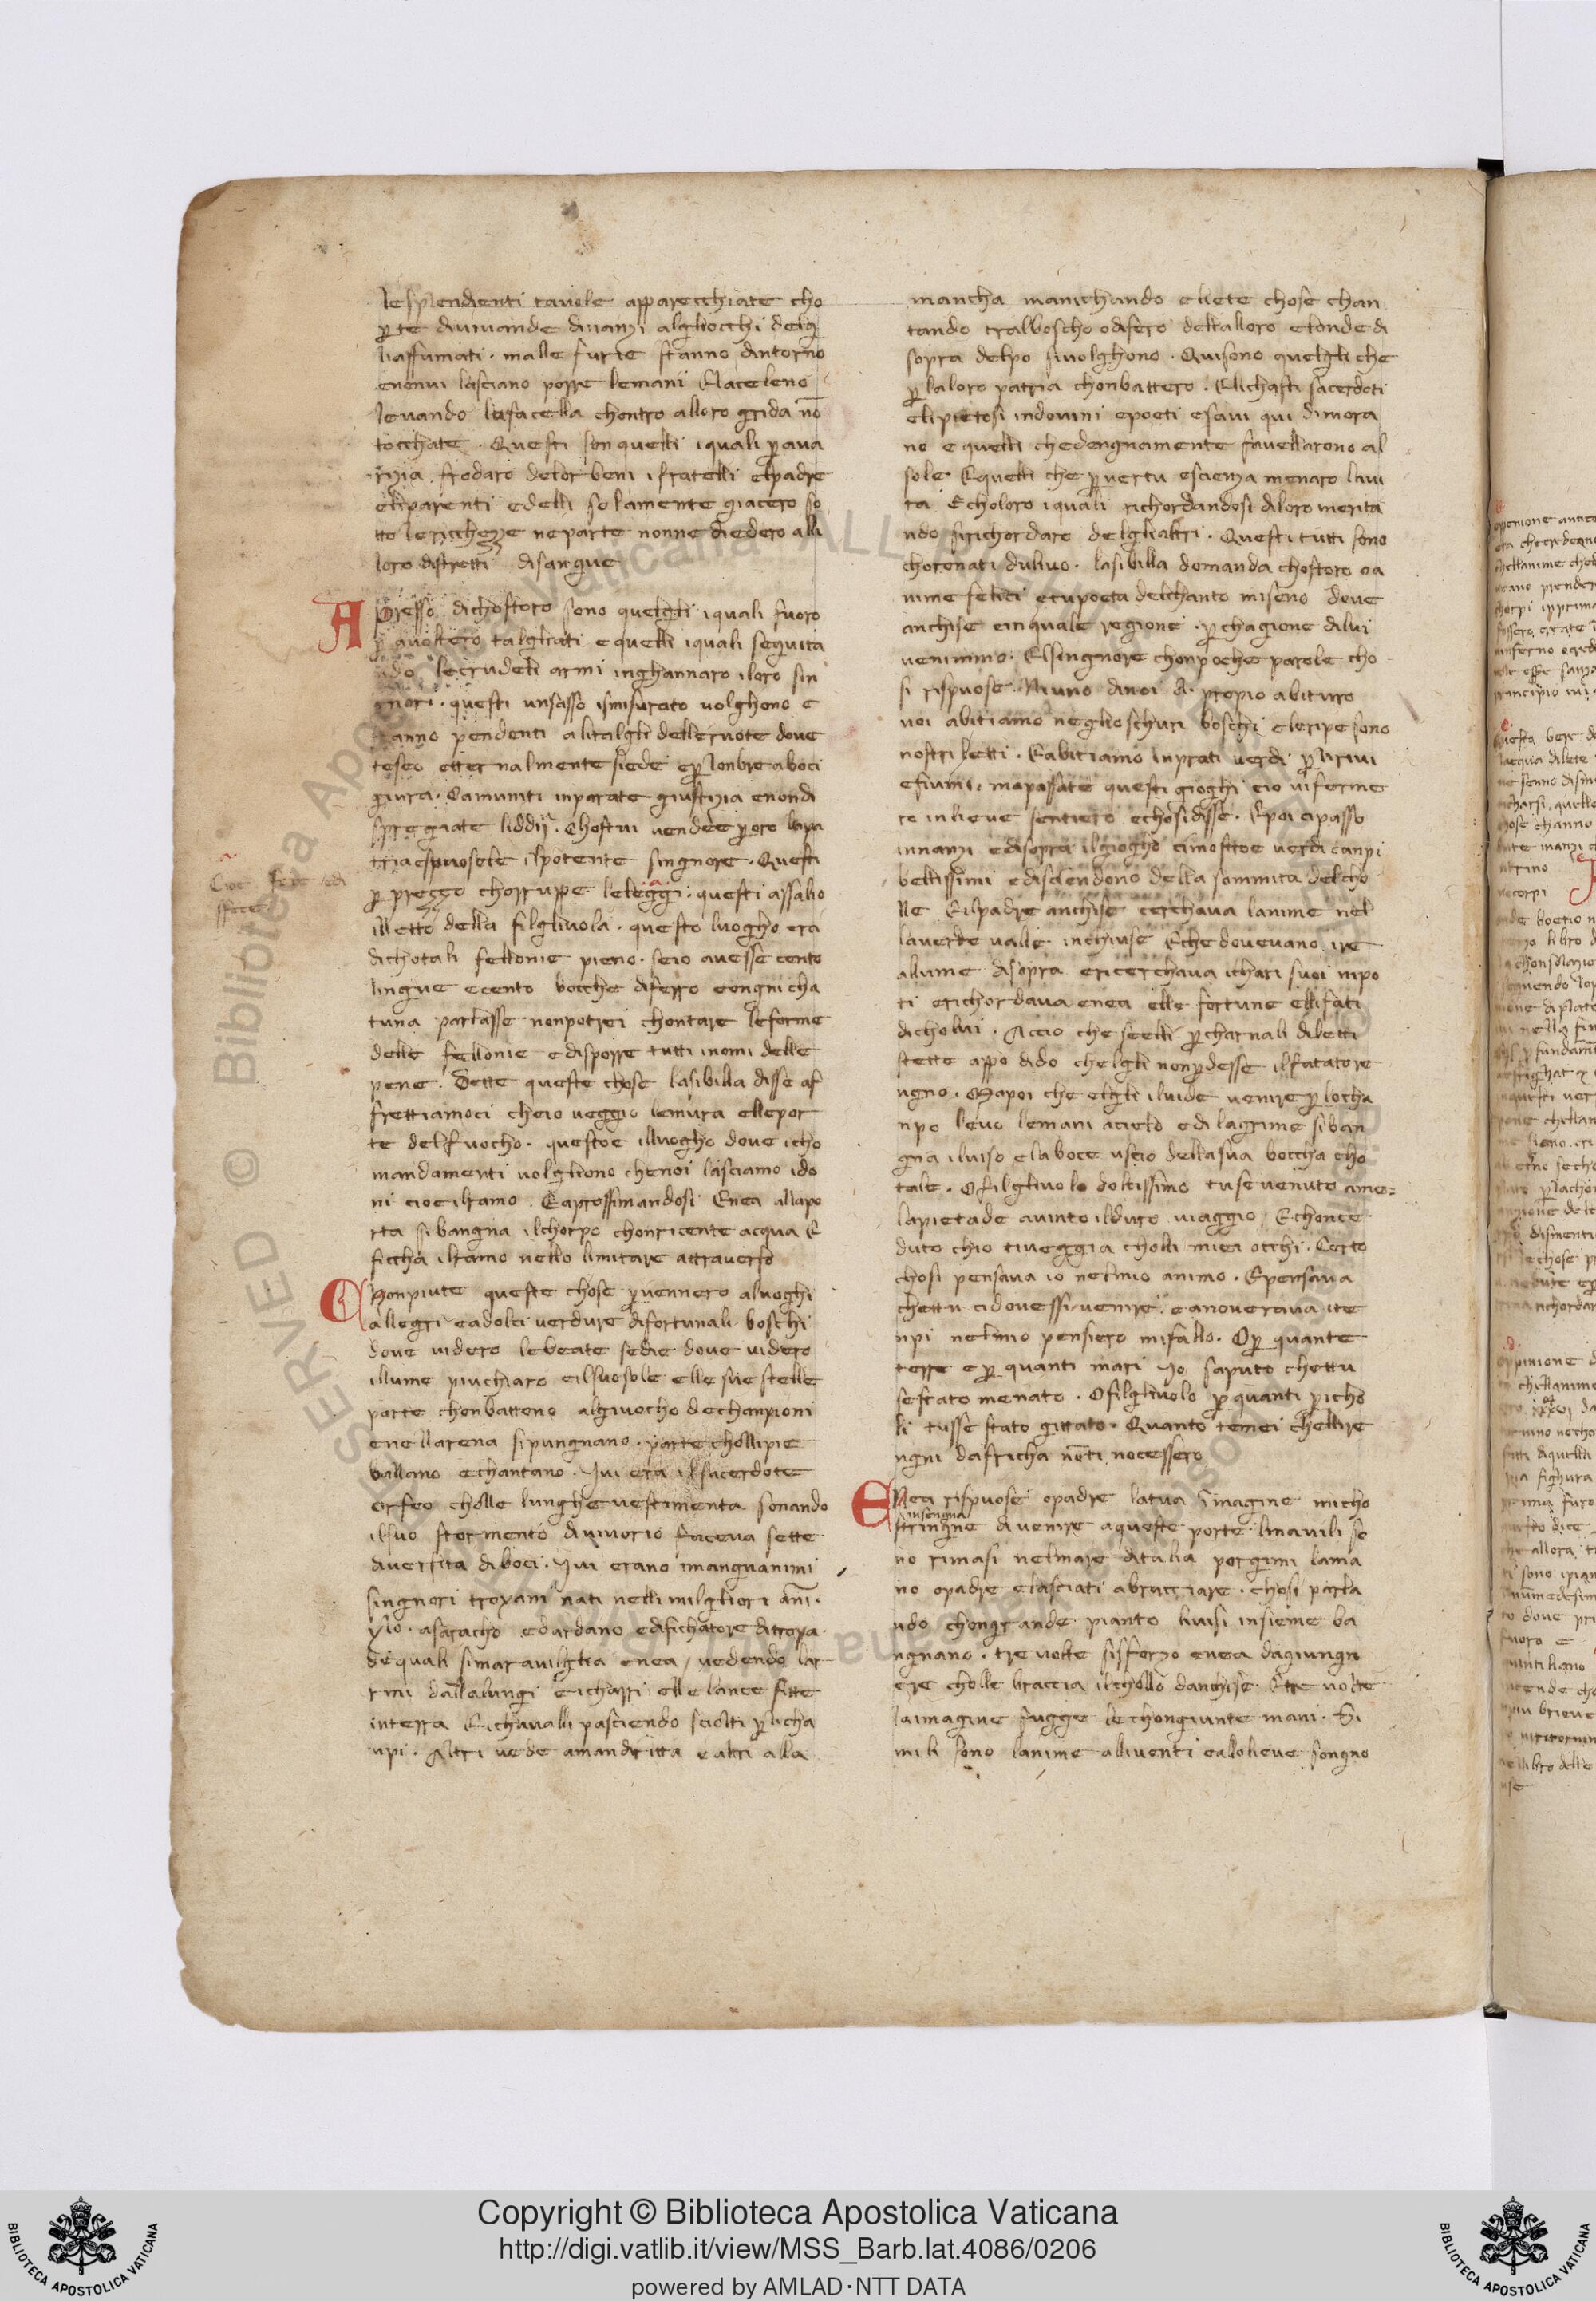 lesplendienti tavole apparecchiate cho
ꝑte diuiuande dinanzi algliocchi delgi
liaffamati · malle furie stanno dintorno
enonui lasciano porre lemani Elaceleno
levando lafacella chontro alloro grida nō
tocchate · Questi son quelli iquali ꝑ aua
rizia frodaro delor beni ifratelli elpadre
eliparenti edelli solamente giacero so
tto lericchezze neparte nonne diedero alli
loro distretti disangue
Apresso dichostoro sono quelgli iquali fuoro
ꝑ avoltero talgliati equelli iquali seguita
do lecrudeli armi inghannaro iloro sin
gnori · questi unsasso ismisurato uolghono e
stanno pendenti alitalgli delleruote doue
teseo etternalmente siede eꝑ lonbre aboci
giura · Oamuniti inparate giustizia enondi
spregiate liddij · Chostui vendee ꝑ oro lapa
tria espuosele ilpotente singnore · Questi
ꝑ prezzo chorruppe leleggi · questi assalio
illetto della filgliuola · questo luogho era
dichotali fellonie pieno · seio auesse cento
lingue ecento bocche diferro eongni cha
tuna parlasse nonpotrei chontare leforme
delle fellonie edisporre tutti inomi delle
pene · Dette queste chose lasibilla disse af
frettiamoci cheio ueggio lemura ellepor
te delfuocho · questoe illuogho doue icho
mandamenti uolgliono chenoi lasciamo ido
ni cioe ilramo · Eaprossimandosi Enea allapo
rta si bangna ilchorpo chonricente acqua E
ficcha ilramo nello limitare attraverso
Chonpiute queste chose ꝑuennero aluoghi
allegri eadolci uerdure difortunali boschi
doue uidero lebeate sedie doue uidero
illume piuchiaro eilsuosole elle sue stelle
parte chonbatteno algiuocho dechanpioni
enellarena sipungnano · parte chollipie
ballano echantano · Iui era ilsacerdote
orfeo cholle lunghe uestimenta sonando
ilsuo stormento diuiuorio faceua sette
diuersita diboci · Iui erano imangnanimi
singnori troyani nati nelli milgliori anni ·
ylo · asaracho edardano edifichatore ditroya ·
dequali simarauilglia enea / uedendo lar
rmi dallalungi eicharri elle lance fitte
interra Eichaualli pasciendo sciolti ꝑ licha
npi · Altri uede amandiritta ealtri alla
Cioe fece
ffece
mancha manichando eliete chose chan
tando tralboscho odifero dellalloro elonde di
sopra delpo siuolghono · Quisono quelgli che
ꝑ laloro patria chonbattero · Elichasti sacerdoti
elipietosi indouini epoeti esaui qui dimora
no equelli chedengnamente fauellarono al
sole · Equelli che ꝑ uertu escienza menaro laui
ta Echoloro iquali richordandosi diloro merita
ndo sirichordaro delglialtri · Questi tutti sono
choronati duliuo · lasibilla domanda chostoro oa
nime felici etupoeta delchanto miseno doue
anchise einquale regione · ꝑ chagione dilui
uenimmo · Elsingnore chonpoche parole cho
si rispuose · Niuno dinoi a propio abituro
noi abitiamo neglioschuri boschi eleripe sono
nostri letti · Eabitiamo inprati uerdi ꝑ liriui
efiumi · mapassate questi gioghi eio uiferme
ro inlieue sentiero echosidisse · Epoi cipasso
innanzi edisopra ilgiogho cimosttoe uerdi canpi
bellissimi ediscendono della sommita delcho
lle Eilpadre anchise cerchaua lanime nel
lauerde ualle inchiuse Eche doueuano ire
allume disopra ericerchaua ichari suoi nipo
ti erichordaua enea elle fortune ellifati
dicholui · Accio che seelli ꝑ charnali diletti
stette appo dido chelgli nonꝑdesse ilfatatore
ngno · Mapoi che elgli iluide uenire ꝑ locha
npo leuo lemani alcielo edilagrime siban
gna iluiso elaboce uscio dellasua boccha cho
tale · Ofilgliuolo dolcissimo tuse uenuto ame=
lapietade auinto ilduro uiaggio · Echonce
duto chio tiueggia cholli miei occhi · Certo
chosi pensaua io nelmio animo · Epensaua
chettu cidouessi uenire eanoueraua ite
npi nelmio pensiero mifallo · Oꝑ quante
terre eꝑ quanti mari Io saputo chettu
sestato menato · Ofilgliuolo ꝑ quanti ꝑicho
li tusse stato gittato · Quanto temei chellire
ngni dafricha nōti nocessero
Enea rispuose opadre latua imagine micho
insengna
strinqne diuenire aqueste porte · linauili so
no rimasi nelmare ditalia porgimi lama
no opadre elasciati abracciare · chosi parla
ndo chongrande pianto liuisi insieme ba
ngnano · tre uolte sisforzo enea dagiungn
ere cholle braccia ilchollo danchise · Etre uolte
laimagine fugge lechongiunte mani · Si
mili sono lanime alliuenti eallolieue songno
Copyright © Biblioteca Apostolica Vaticana
http://digi.vatlib.it/view/MSS_Barb.lat.4086/0206
powered by AMLAD·NTT DATA
BIBLIOTECA APOSTOLICA VATICANA
BIBLIOTECA APOSTOLICA VATICANA